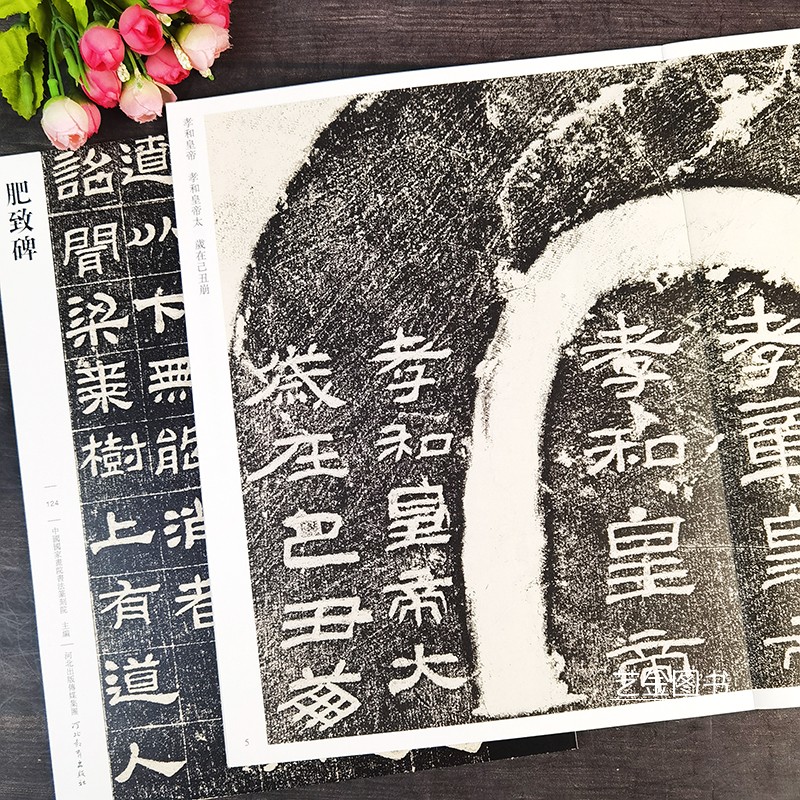 肥致碑
遼以下無能消者
詔聞梁棗樹上有道人
124
中國國家書院書法篆刻院 主編
河北出版傳媒集團 河北教育出版社
孝和皇帝 孝和皇帝太 歲在己丑崩
孝章皇
孝和皇帝
孝和皇帝大
歲在己丑崩
5